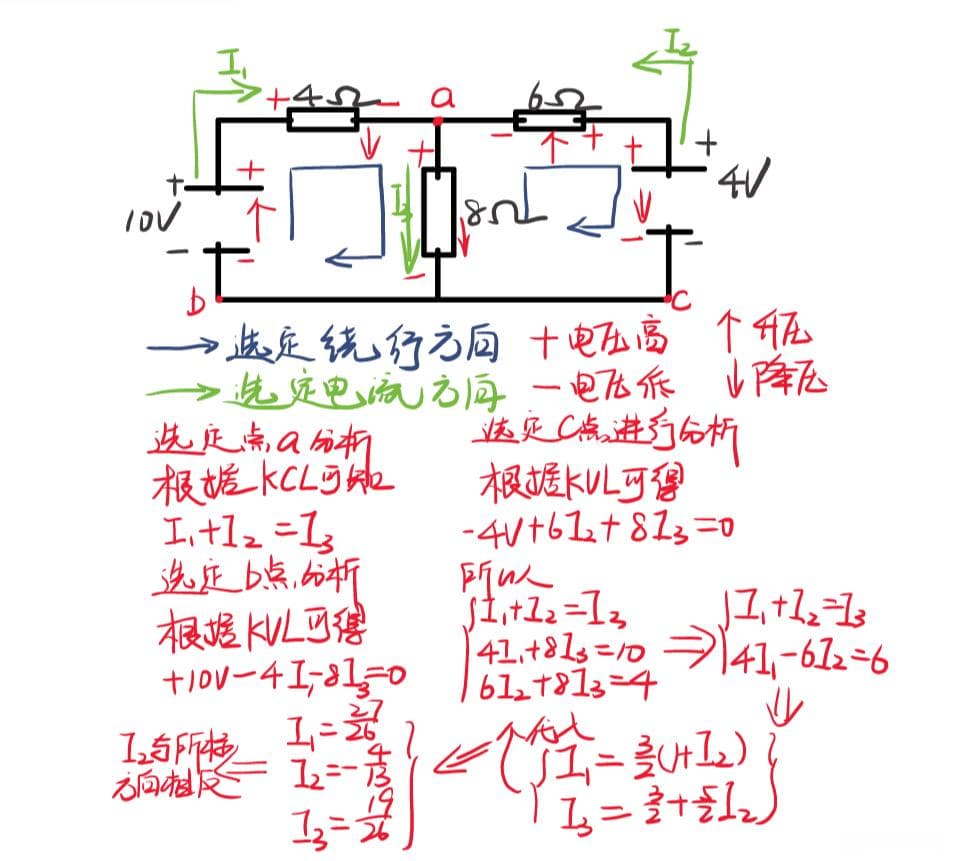 I₁
I₂
+ 4Ω -
a
6Ω
- +
+
10V
-
+
-
I₃
+
8Ω
-
+
-
+
4V
-
b
c
→选定绕行方向
+电压高
↑升压
→选定电流方向
-电压低
↓降压
选定点a分析
根据KCL可知
I₁+I₂=I₃
选定b点分析
根据KVL可得
+10V-4I₁-8I₃=0
选定C点进行分析
根据KVL可得
-4V+6I₂+8I₃=0
所以
I₁+I₂=I₃
4I₁+8I₃=10
6I₂+8I₃=4
⇒
I₁+I₂=I₃
4I₁-6I₂=6
⇓
代入
I₁=3/2(1+I₂)
I₃=3/2+5/2I₂
⇐
I₁=27/26
I₂=-4/13
I₃=19/26
⇐
I₂与所标
方向相反